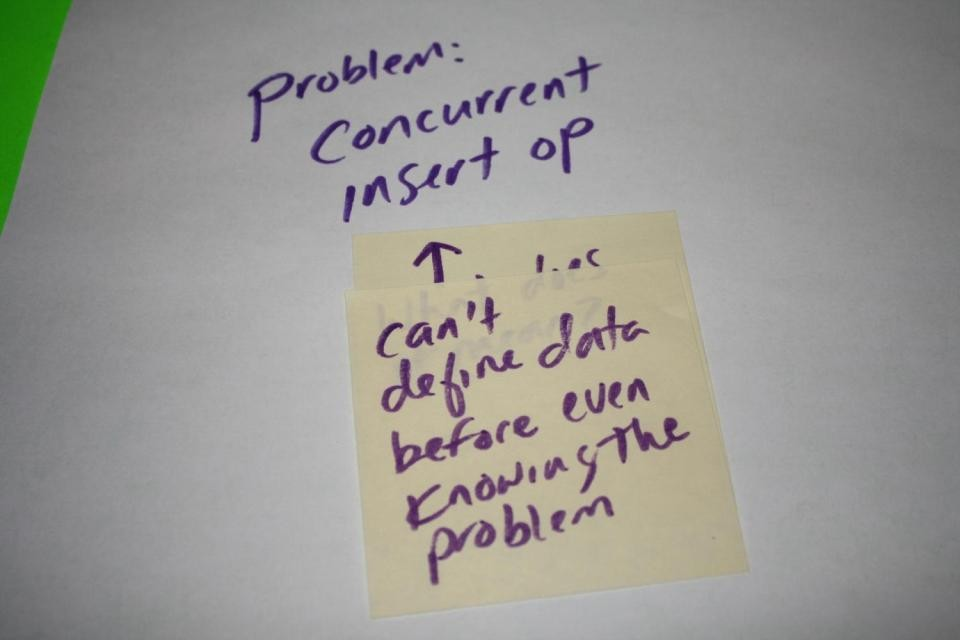 Problem:
Concurrent
insert op
↑
What does
mean?
can't
define data
before even
knowing the
problem